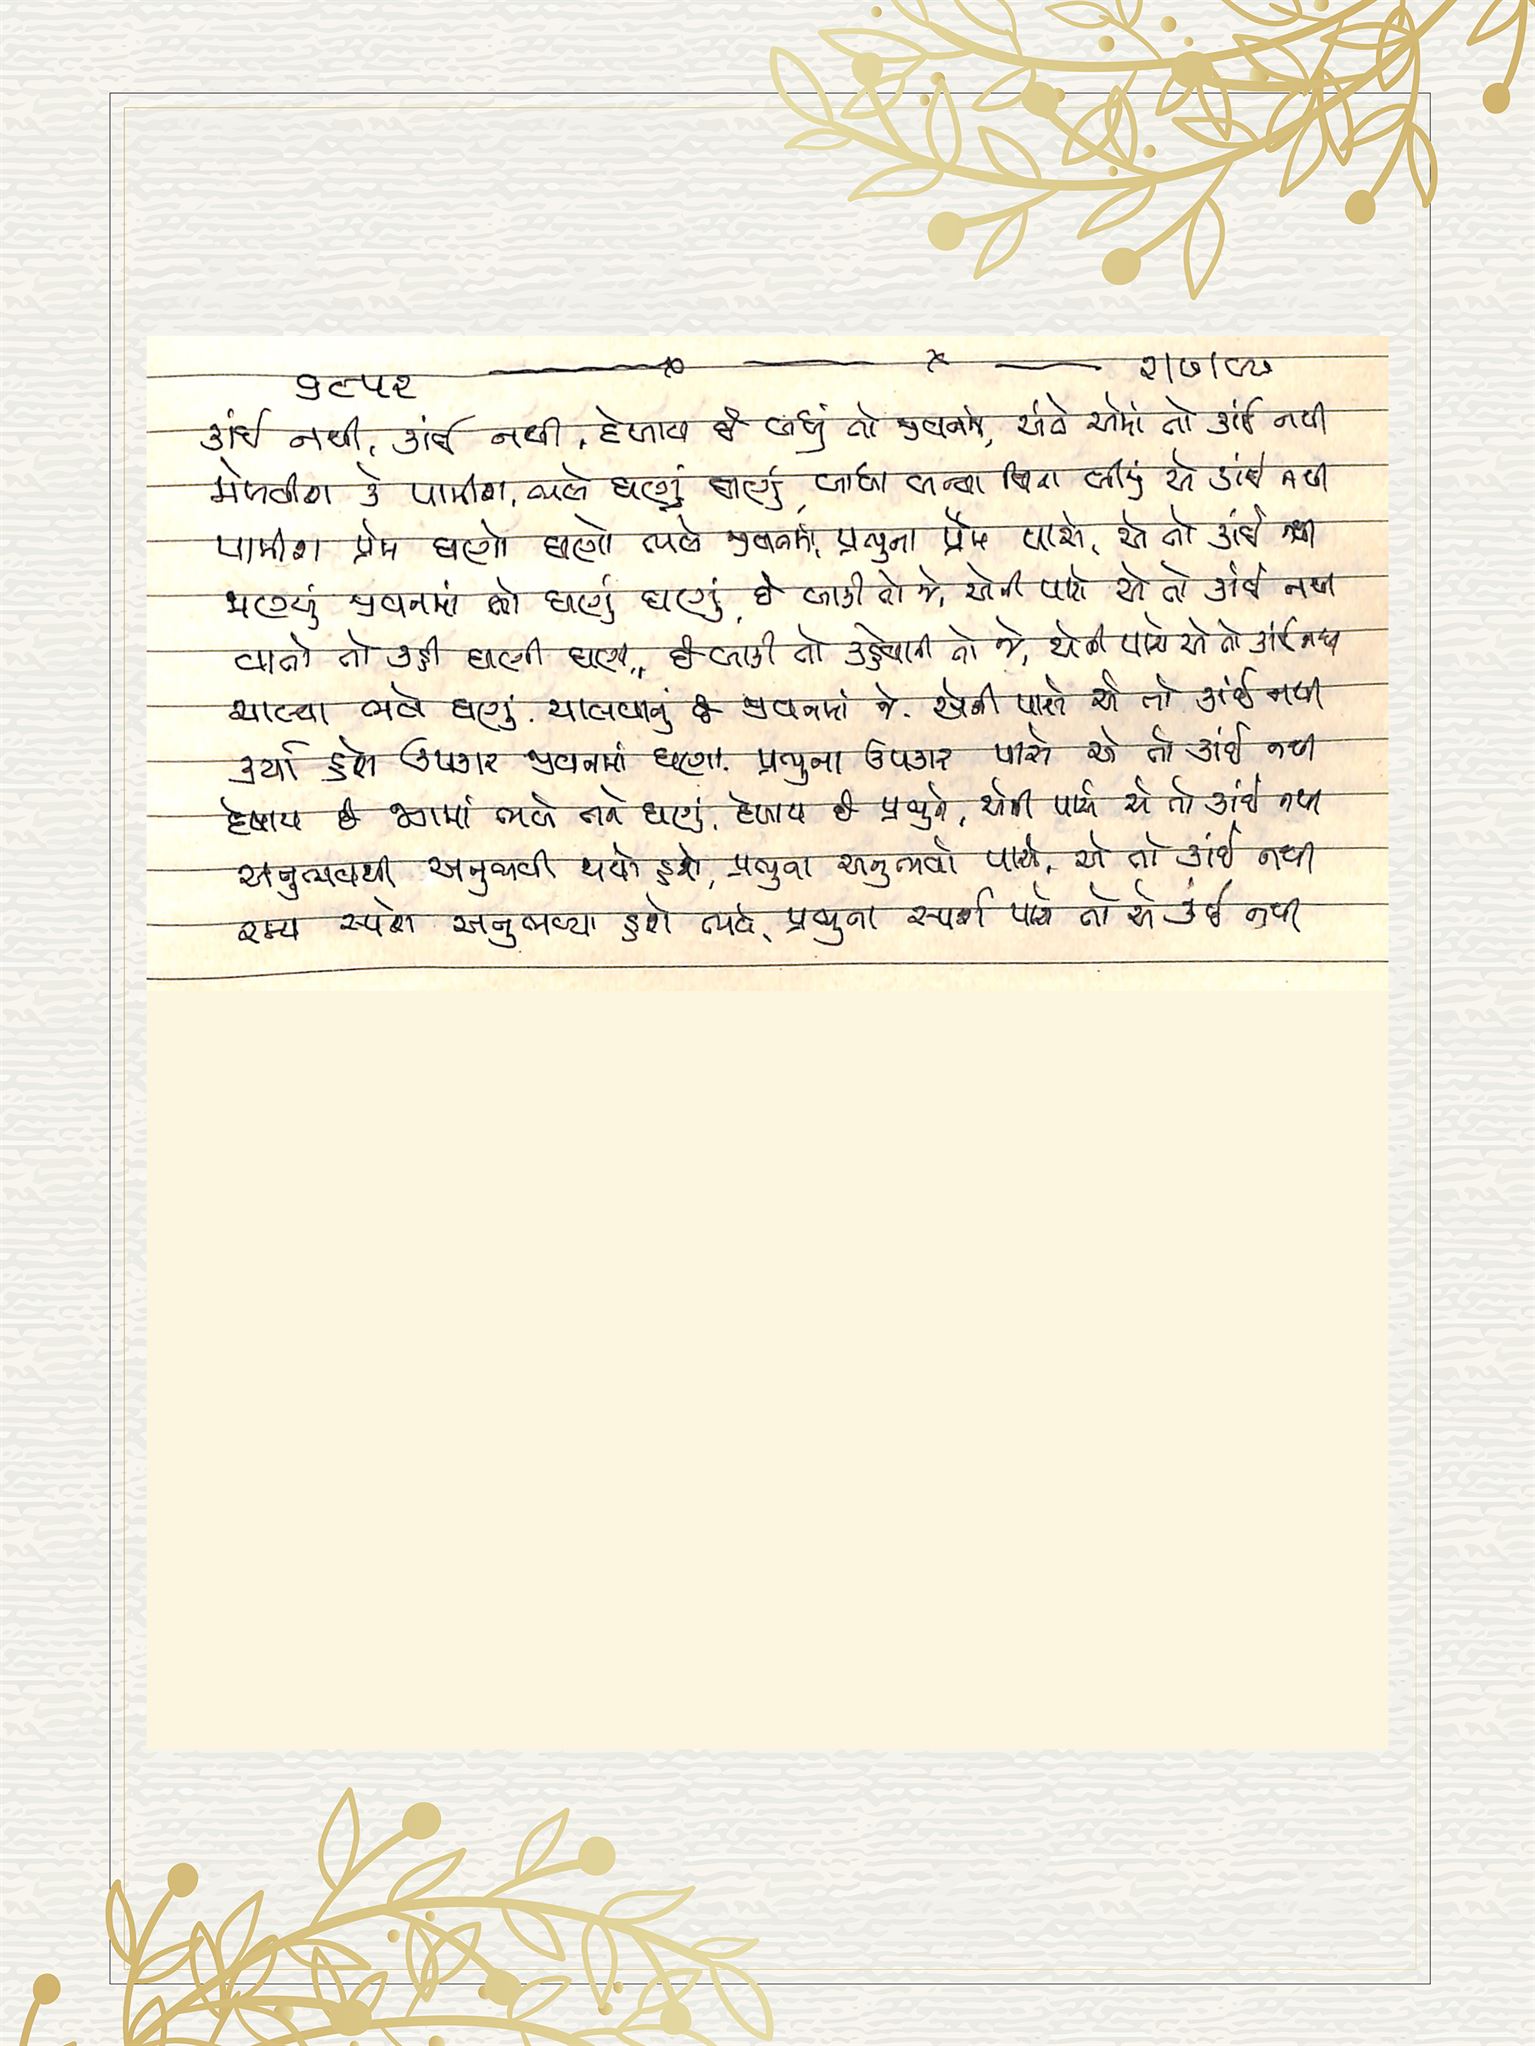 ૧૮૫૨ ૨/૭/૮૭
કાંઈ નથી, કાંઈ નથી, દેખાય છે બધું તો જીવનમાં, અંતે એમાં તો કાંઈ નથી
મેળવીશ કે પામીશ, ભલે ઘણું ઘણું, બીજું એ કાંઈ નથી
પામીશ પ્રેમ ઘણો ઘણો ભલે જીવનમાં, પ્રભુના પ્રેમ પાસે, એ તો કાંઈ નથી
ભણ્યું જીવનમાં તો ઘણું ઘણું, છે બાકી તો જે, એની પાસે એ તો કાંઈ નથી
વાતો તો કહી ઘણી ઘણી, છે બાકી તો કહેવાની તો જે, એની પાસે એ તો કાંઈ નથી
ચાલ્યા ભલે ઘણું, ચાલવાનું છે જીવનમાં જે, એની પાસે એ તો કાંઈ નથી
કર્યા હશે ઉપકાર જીવનમાં ઘણા, પ્રભુના ઉપકાર પાસે એ તો કાંઈ નથી
દેખાય છે જગમાં ભલે તને ઘણું, દેખાય છે પ્રભુને, એની પાસે એ તો કાંઈ નથી
અનુભવથી અનુભવી થયો હશે, પ્રભુના અનુભવો પાસે, એ તો કાંઈ નથી
રમ્ય સ્પર્શ અનુભવ્યા હશે ભલે, પ્રભુના સ્પર્શ પાસે તો એ કાંઈ નથી